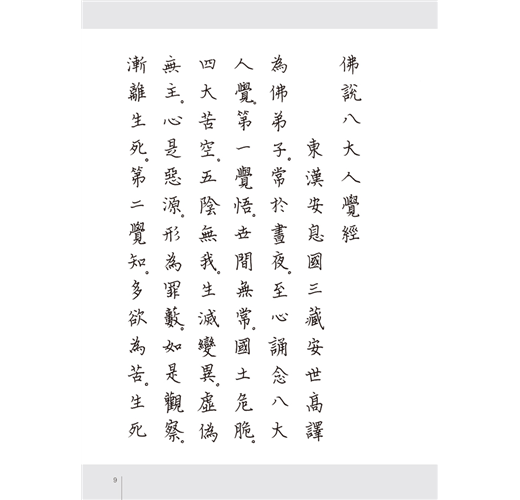 佛說八大人覺經
東漢安息國三藏安世高譯
為佛弟子。常於晝夜。至心誦念八大
人覺。第一覺悟。世間無常。國土危脆。
四大苦空。五陰無我。生滅變異。虛偽
無主。心是惡源。形為罪藪。如是觀察。
漸離生死。第二覺知。多欲為苦。生死
9